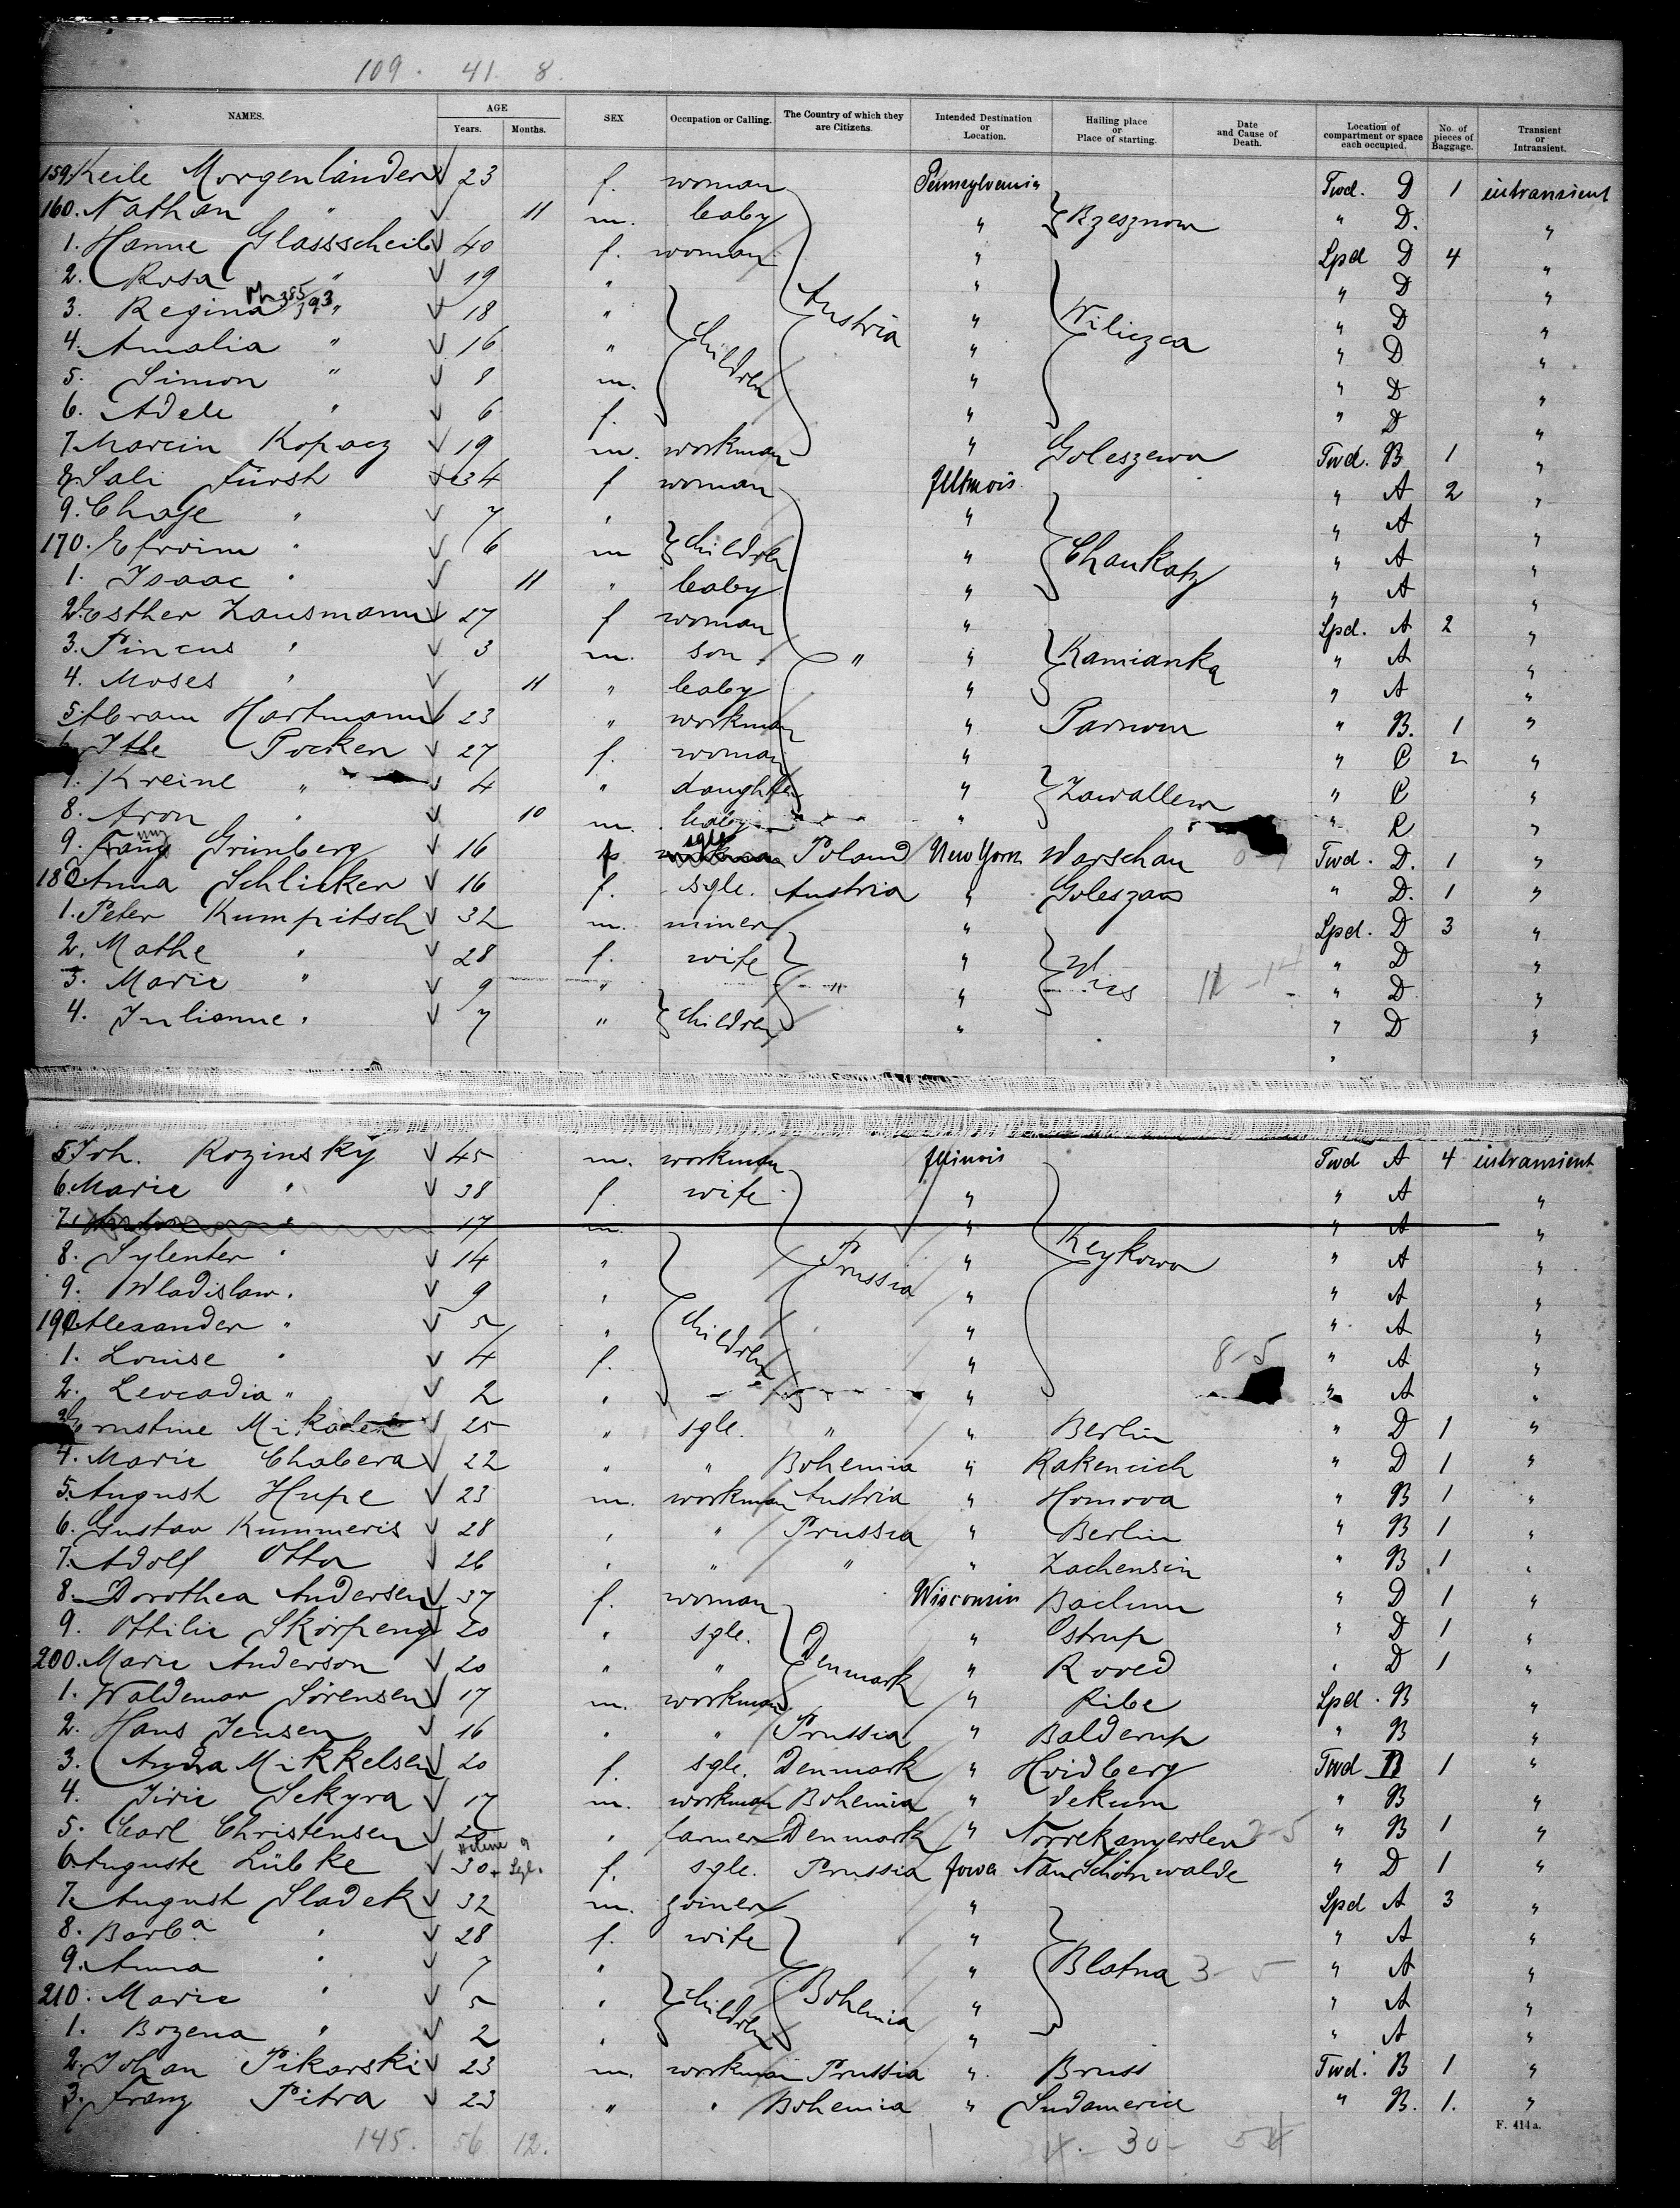 109. 41. 8.
NAMES. AGE Years. Months. SEX Occupation or Calling. The Country of which they are Citizens. Intended Destination or Location. Hailing place or Place of starting. Date and Cause of Death. Location of compartment or space each occupied. No. of pieces of Baggage. Transient or Intransient.
159. Keile Morgenländer √ 23 f. woman Pennsylvania Twd. D 1 intransient
160. Nathan " √ 11 m. baby " } Bzesznow " D. "
1. Hanne Glassscheib √ 40 f. woman " Lpd D 4 "
2. Rosa " √ 19 " " " D "
3. Regina " √ 18 " Austria " Wiliczca " D "
4. Amalia " √ 16 " children " " D "
5. Simon " √ 8 m. " " D "
6. Adele " √ 6 f. " " D "
7. Marcin Kopacz √ 19 m. workman " Goleszewo Twd. B 1 "
8. Sali Fürst √ 34 f woman Illinois " A 2 "
9. Chaje " √ 7 " " " A "
170. Efroim " √ 6 m } children " Chaukatz " A "
1. Isaac " √ 11 " baby " " A "
2. Esther Zausmann √ 27 f woman " Lpd. A 2 "
3. Pincus " √ 3 m. son " " } Kamianka " A "
4. Moses " √ 11 " baby " " A "
5. Abram Hartmann √ 23 " workman " Tarnow " B. 1 "
Itte Pocken √ 27 f. woman " " C 2 "
7. Kreine " √ 4 " daughter " } Zawallew " C "
8. Aron " √ 10 m. baby " " C "
9. Grünberg √ 16 f. sgle Poland New York Warschau Twd. D. 1 "
180. Anna Schlicker √ 16 f. sgle. Austria " Goleszow " D. 1 "
1. Peter Kumpitsch √ 32 m. miner " Lpd. D 3 "
2. Mathe " √ 28 f. wife " " D "
3. Marie " √ 9 " " " " D "
4. Julianne " √ 7 " } children " " D "
5. Joh. Rozinsky √ 45 m. workman Illinois Twd A 4 intransient
6. Marie " √ 38 f. wife " " A "
7. 17 m. " " A "
8. Sylenter " √ 14 " Prussia " Keykowo " A "
9. Wladislaw " √ 9 " " " A "
190. Alexander " √ 5 " children " " A "
1. Louise " √ 4 f. " 8-5 " A "
2. Leocadia " √ 2 " " " A "
Ernstine Mikadet √ 25 " sgle. " " Berlin " D 1 "
4. Marie Chabera √ 22 " " Bohemia " Rakencich " D 1 "
5. August Hupe √ 23 m. workman Austria " Homova " B 1 "
6. Gustav Kummeris √ 28 " " Prussia " Berlin " B 1 "
7. Adolf Otto √ 26 " " " " Zachensin " B 1 "
8. Dorothea Andersen √ 37 f. woman Wisconsin Baelum " D 1 "
9. Ottilie Skörpeng √ 20 " sgle. " Ostrup " D 1 "
200. Marie Anderson √ 20 " " Denmark " Roved " D 1 "
1. Waldemar Sørensen √ 17 m. workman " Ribe Lpd. B "
2. Hans Jensen √ 16 " " Prussia " Balderup " B "
3. Andra Mikkelsen √ 20 f. sgle. Denmark " Hvidberg Twd 1 "
4. Jiric Sekyra √ 17 m. workman Bohemia " Dekum " B "
5. Carl Christensen √ 25 " farmer Denmark " " B 1 "
6. Auguste Lübke √ 30 f. sgle. Prussia Iowa Nau Schönwalde " D 1 "
7. August Sladek √ 32 m. joiner " Lpd A 3 "
8. Barba " √ 28 f. wife " " A "
9. Anna " √ 7 " " Blatna 3-5 " A "
210. Marie " √ 5 " children Bohemia " " A "
1. Bozena " √ 2 " " " A "
2. Johan Pikarski √ 23 m. workman Prussia " Bruss Twd. B 1 "
3. Franz Pitra √ 23 " " Bohemia " Sudameric " B. 1. "
F. 414a.
145. 56 12. 30-